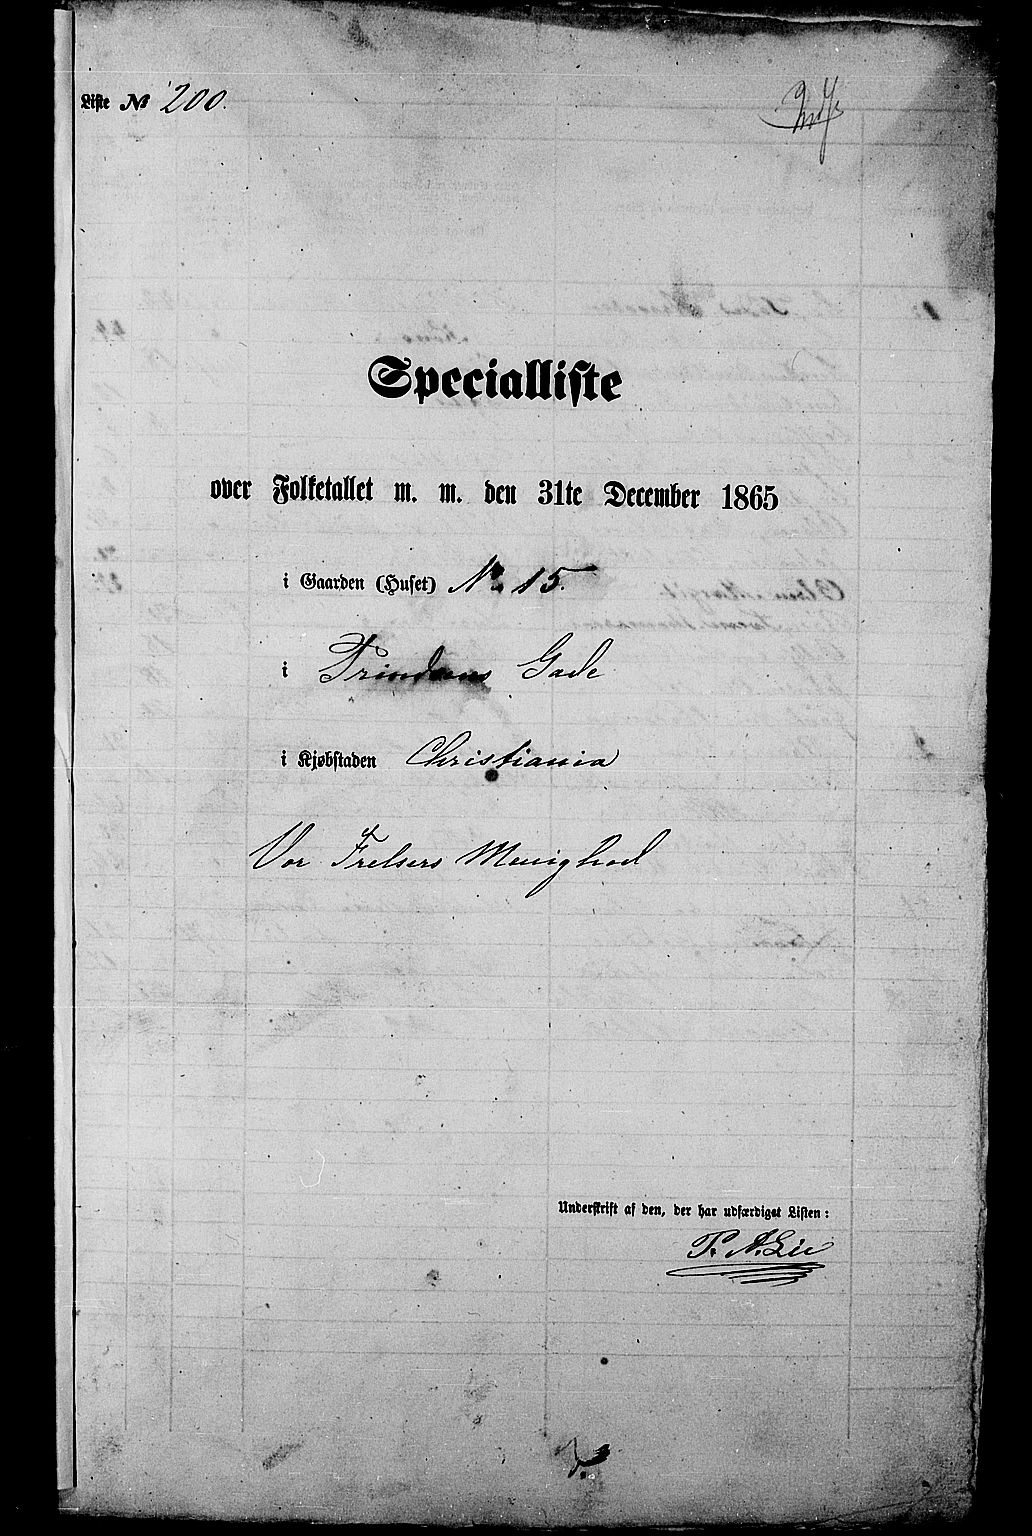 Liste № 200.
Specialliste
over Folketallet m. m. den 31te December 1865
i Gaarden (Huset) No 15.
i Trindsens Gade
i Kjøbstaden Christiania
Vor Frelsers Menighed
Underskrift af den, der har udfærdiget Listen:
P. A. Lie